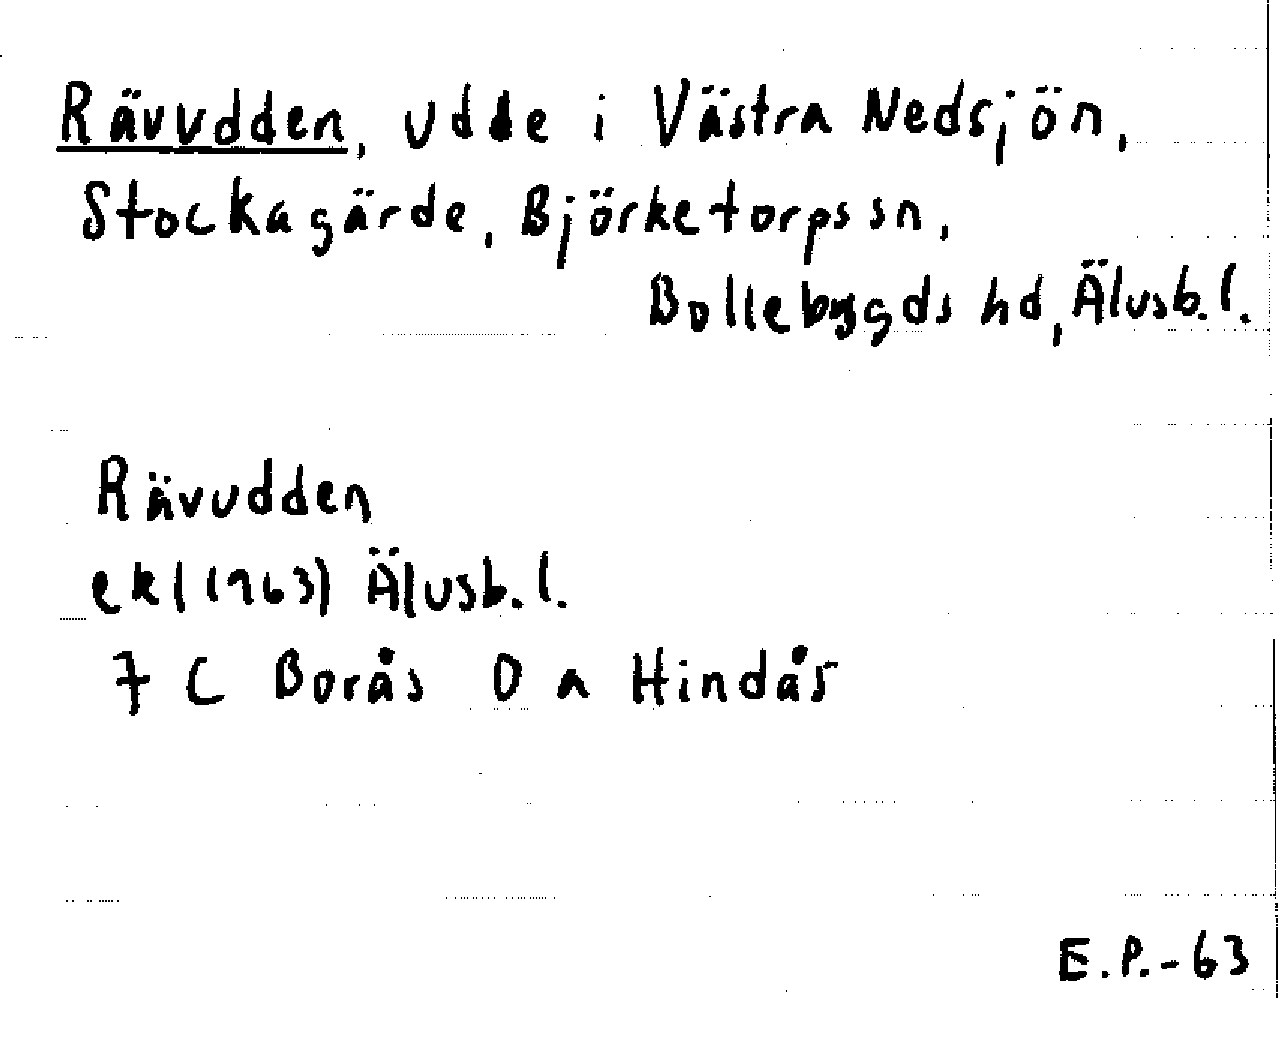 Rävudden, udde i Västra Nedsjön,
Stockagärde, Björketorps sn,
Bollebygds hd, Älvsb. l.
Rävudden
ek (1963) Älvsb. l.
7 C Borås 0 a Hindås
E.P.-63